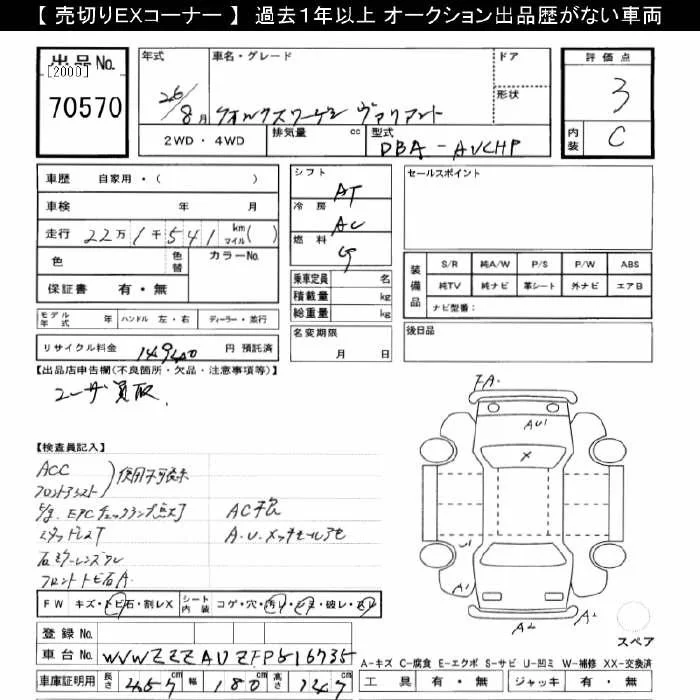 【 売切りEXコーナー 】 過去1年以上 オークション出品歴がない車両
出品No.
[2000]
70570
年式
26/8月
車名・グレード
フォルクスワーゲン ヴァリアント
ドア
形状
評価点
3
内装 C
2WD・4WD
排気量 cc
型式 DBA-AUCHP
車歴 自家用・( )
車検 年 月
走行 22万1千541 km マイル( )
色 色替 カラーNo.
保証書 有・無
モデル年式 年 ハンドル 左・右 ディーラー・並行
リサイクル料金 円 預託済
シフト AT
冷房 AC
燃料 G
乗車定員 名
積載量 kg
総重量 kg
名変期限
月 日
セールスポイント
装備品
S/R 純A/W P/S P/W ABS
純TV 純ナビ 革シート 外ナビ エアB
ナビ型番:
後日品
【出品店申告欄(不良箇所・欠品・注意事項等)】
ユーザ買取.
【検査員記入】
ACC
フロントアシスト
使用不可表示
EPCチェックランプ点灯
AC不良
A.U.メッキモールアセ
フロントトビ石A.
FA.
AU1
X
U1
A1
A1
A2
A2
スペア
FW キズ・トビ石・割レX シート内装 コゲ・穴・汚レ・シミ・破レ・スレ
登録No.
車台No. WVWZZZAUZFP516735
車庫証明用 長さ 457 幅 180 高さ 147
A-キズ C-腐食 E-エクボ S-サビ U-凹ミ W-補修 XX-交換済
工具 有・無 ジャッキ 有・無